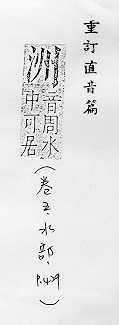 重訂直音篇
洲 音周水中可居
(卷五.水部.P.429)